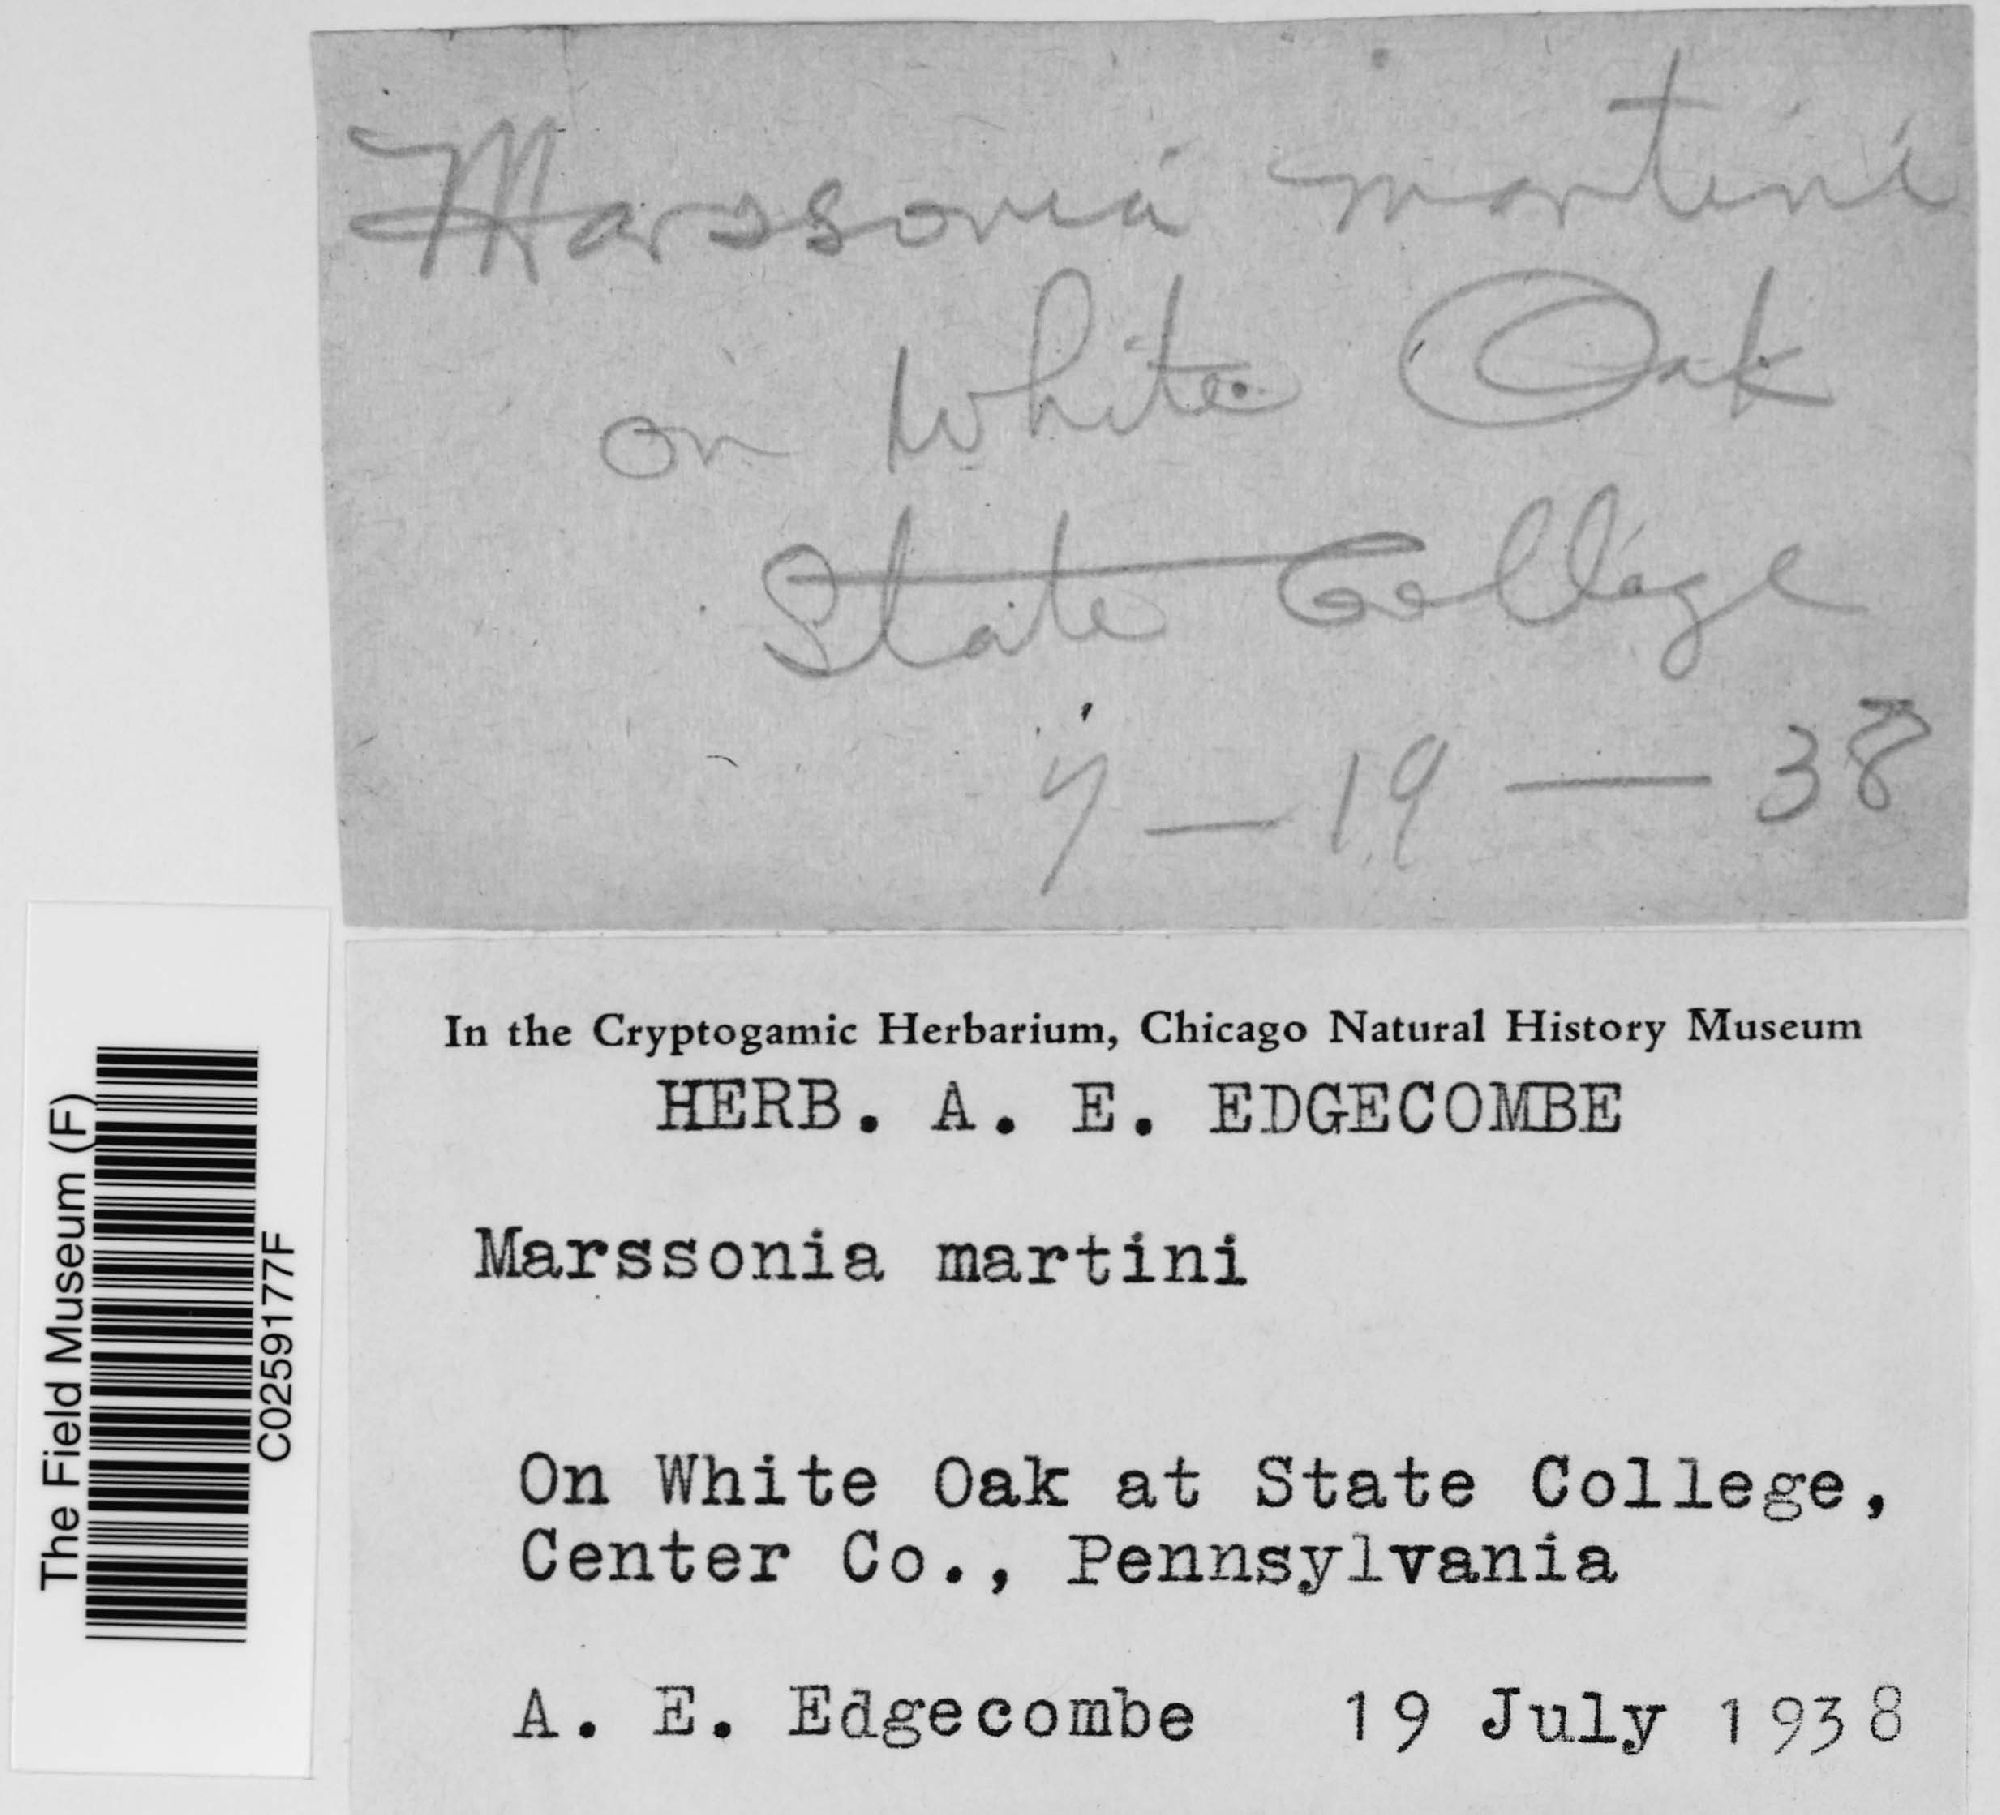 Marssonia martini
on White Oak
State College
7-19-38
The Field Museum (F)
C0259177F
In the Cryptogamic Herbarium, Chicago Natural History Museum
HERB. A. E. EDGECOMBE
Marssonia martini
On White Oak at State College,
Center Co., Pennsylvania
A. E. Edgecombe 19 July 1938